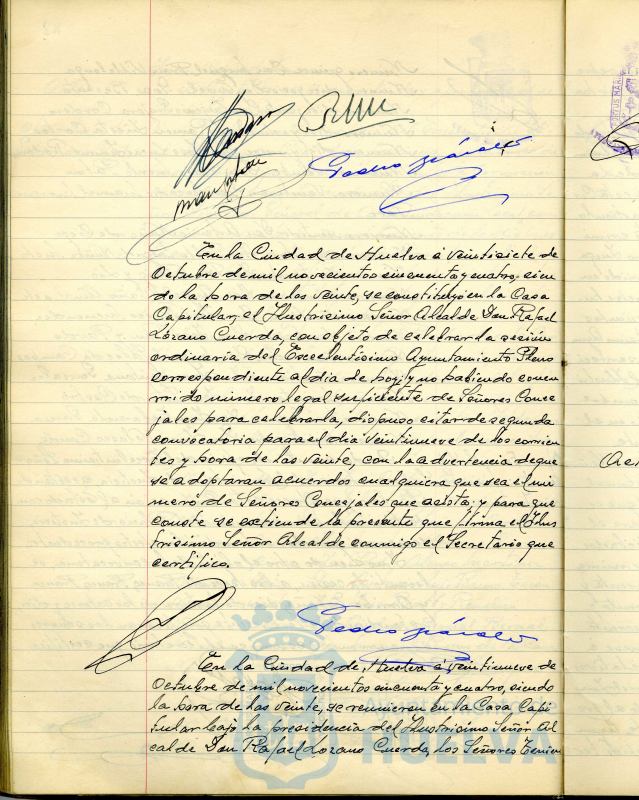 Pedro
En la Ciudad de Huelva á veintisiete de
Octubre de mil novecientos cincuenta y cuatro, sien
do la hora de las veinte, se constituyó en la Casa
Capitular, el Ilustrisimo Señor Alcalde Don Rafael
Lozano Cuerda, con objeto de celebrar la sesión
ordinaria del Excelentisimo Ayuntamiento Pleno
correspondiente al dia de hoy; y no habiendo concu
rrido número legal suficiente de Señores Conce
jales para celebrarla, dispuso citar de segunda
convocatoria para el dia veintinueve de los corrien
tes y hora de las veinte, con la advertencia de que
se adoptaran acuerdos cualquiera que sea el nú
mero de Señores Concejales que asista; y para que
conste se extiende la presente que firma el Ilus
trisimo Señor Alcalde conmigo el Secretario que
certifico.
Pedro
En la Ciudad de Huelva á veintinueve de
Octubre de mil novecientos cincuenta y cuatro, siendo
la hora de las veinte, se reunieron en la Casa Capi
tular bajo la presidencia del Ilustrisimo Señor Al
calde Don Rafael Lozano Cuerda, los Señores Tenien
HUELVA